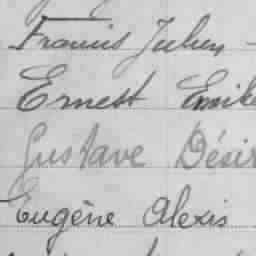 Francis Julien -
Ernest Emile
Gustave Désir
Eugène Alexis